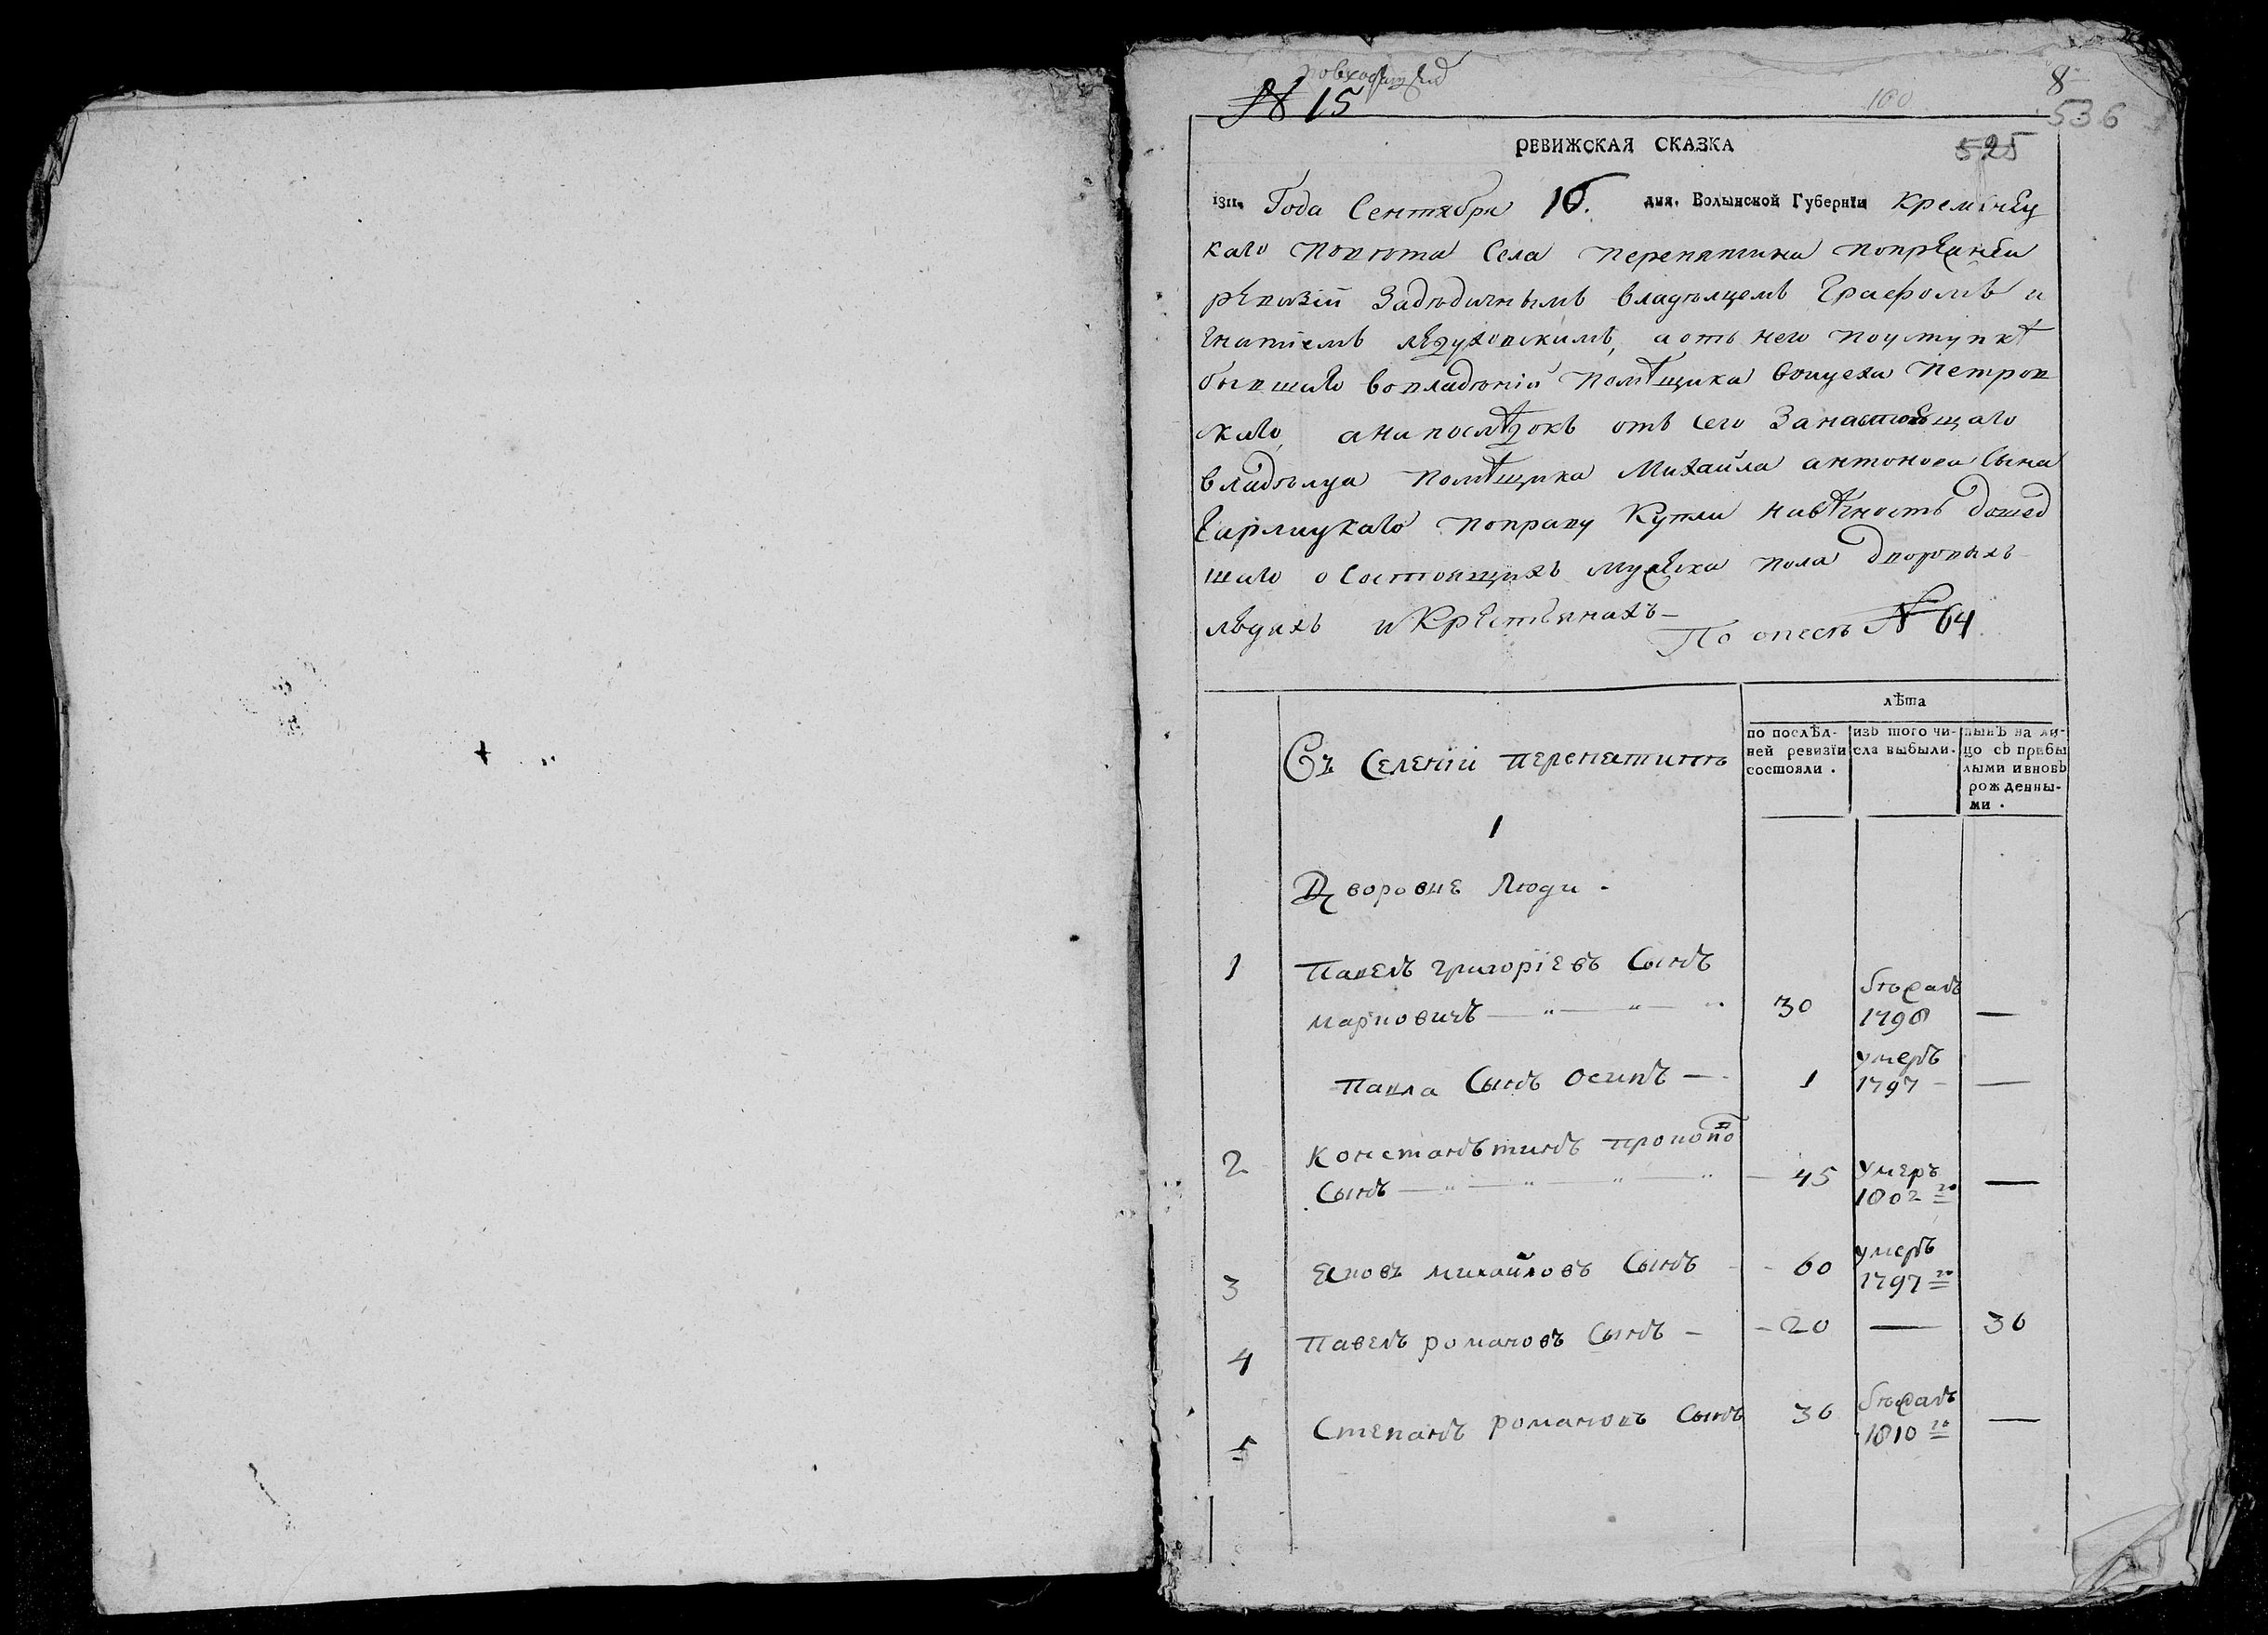 № 15
100
8
536
525
РЕВИЖСКАЯ СКАЗКА
1811. Года Сентября 16. дня. Волынской Губернїи Кременец
каго повѣта Села Перепятина попрежней
ревизіи Задѣдичнымъ владѣлцемъ Графомъ и
гнатіемъ Лѣдуховскимъ, а отъ него поуступкѣ
бывшаго вовладѣніи помѣщика Войцеха Петров
скаго, а напослѣдокъ отъ сего Занастоящаго
владѣлца помѣщика Михайла антонова Сына
поправу Купли навѣчность дошед
шаго о Состоящихъ мужеска пола дворовыхъ
людяхъ и Крестьянахъ
По описѣ № 64
лѣта
Въ Селеніи Перепятинѣ
по послѣд-
ней ревизїи
состояли.
изъ того чи-
сла выбыли.
нынѣ на ли-
цо съ прибы
лыми и вновь
рожденны-
ми.
1
Дворовие Люди.
1 Павелъ григоріевъ Сынъ
Марковичъ 30 бѣжалъ 1798 —
Павла Сынъ Осипъ — 1 умеръ 1797 —
2 Констанътинъ
Сынъ — 45 умеръ 1802го —
3 Яковъ михайловъ Сынъ - 60 умеръ 1797го
4 Павелъ романовъ Сынъ — 20 — 36
5 Степанъ романовъ Сынъ 36 бѣжалъ 1810го —